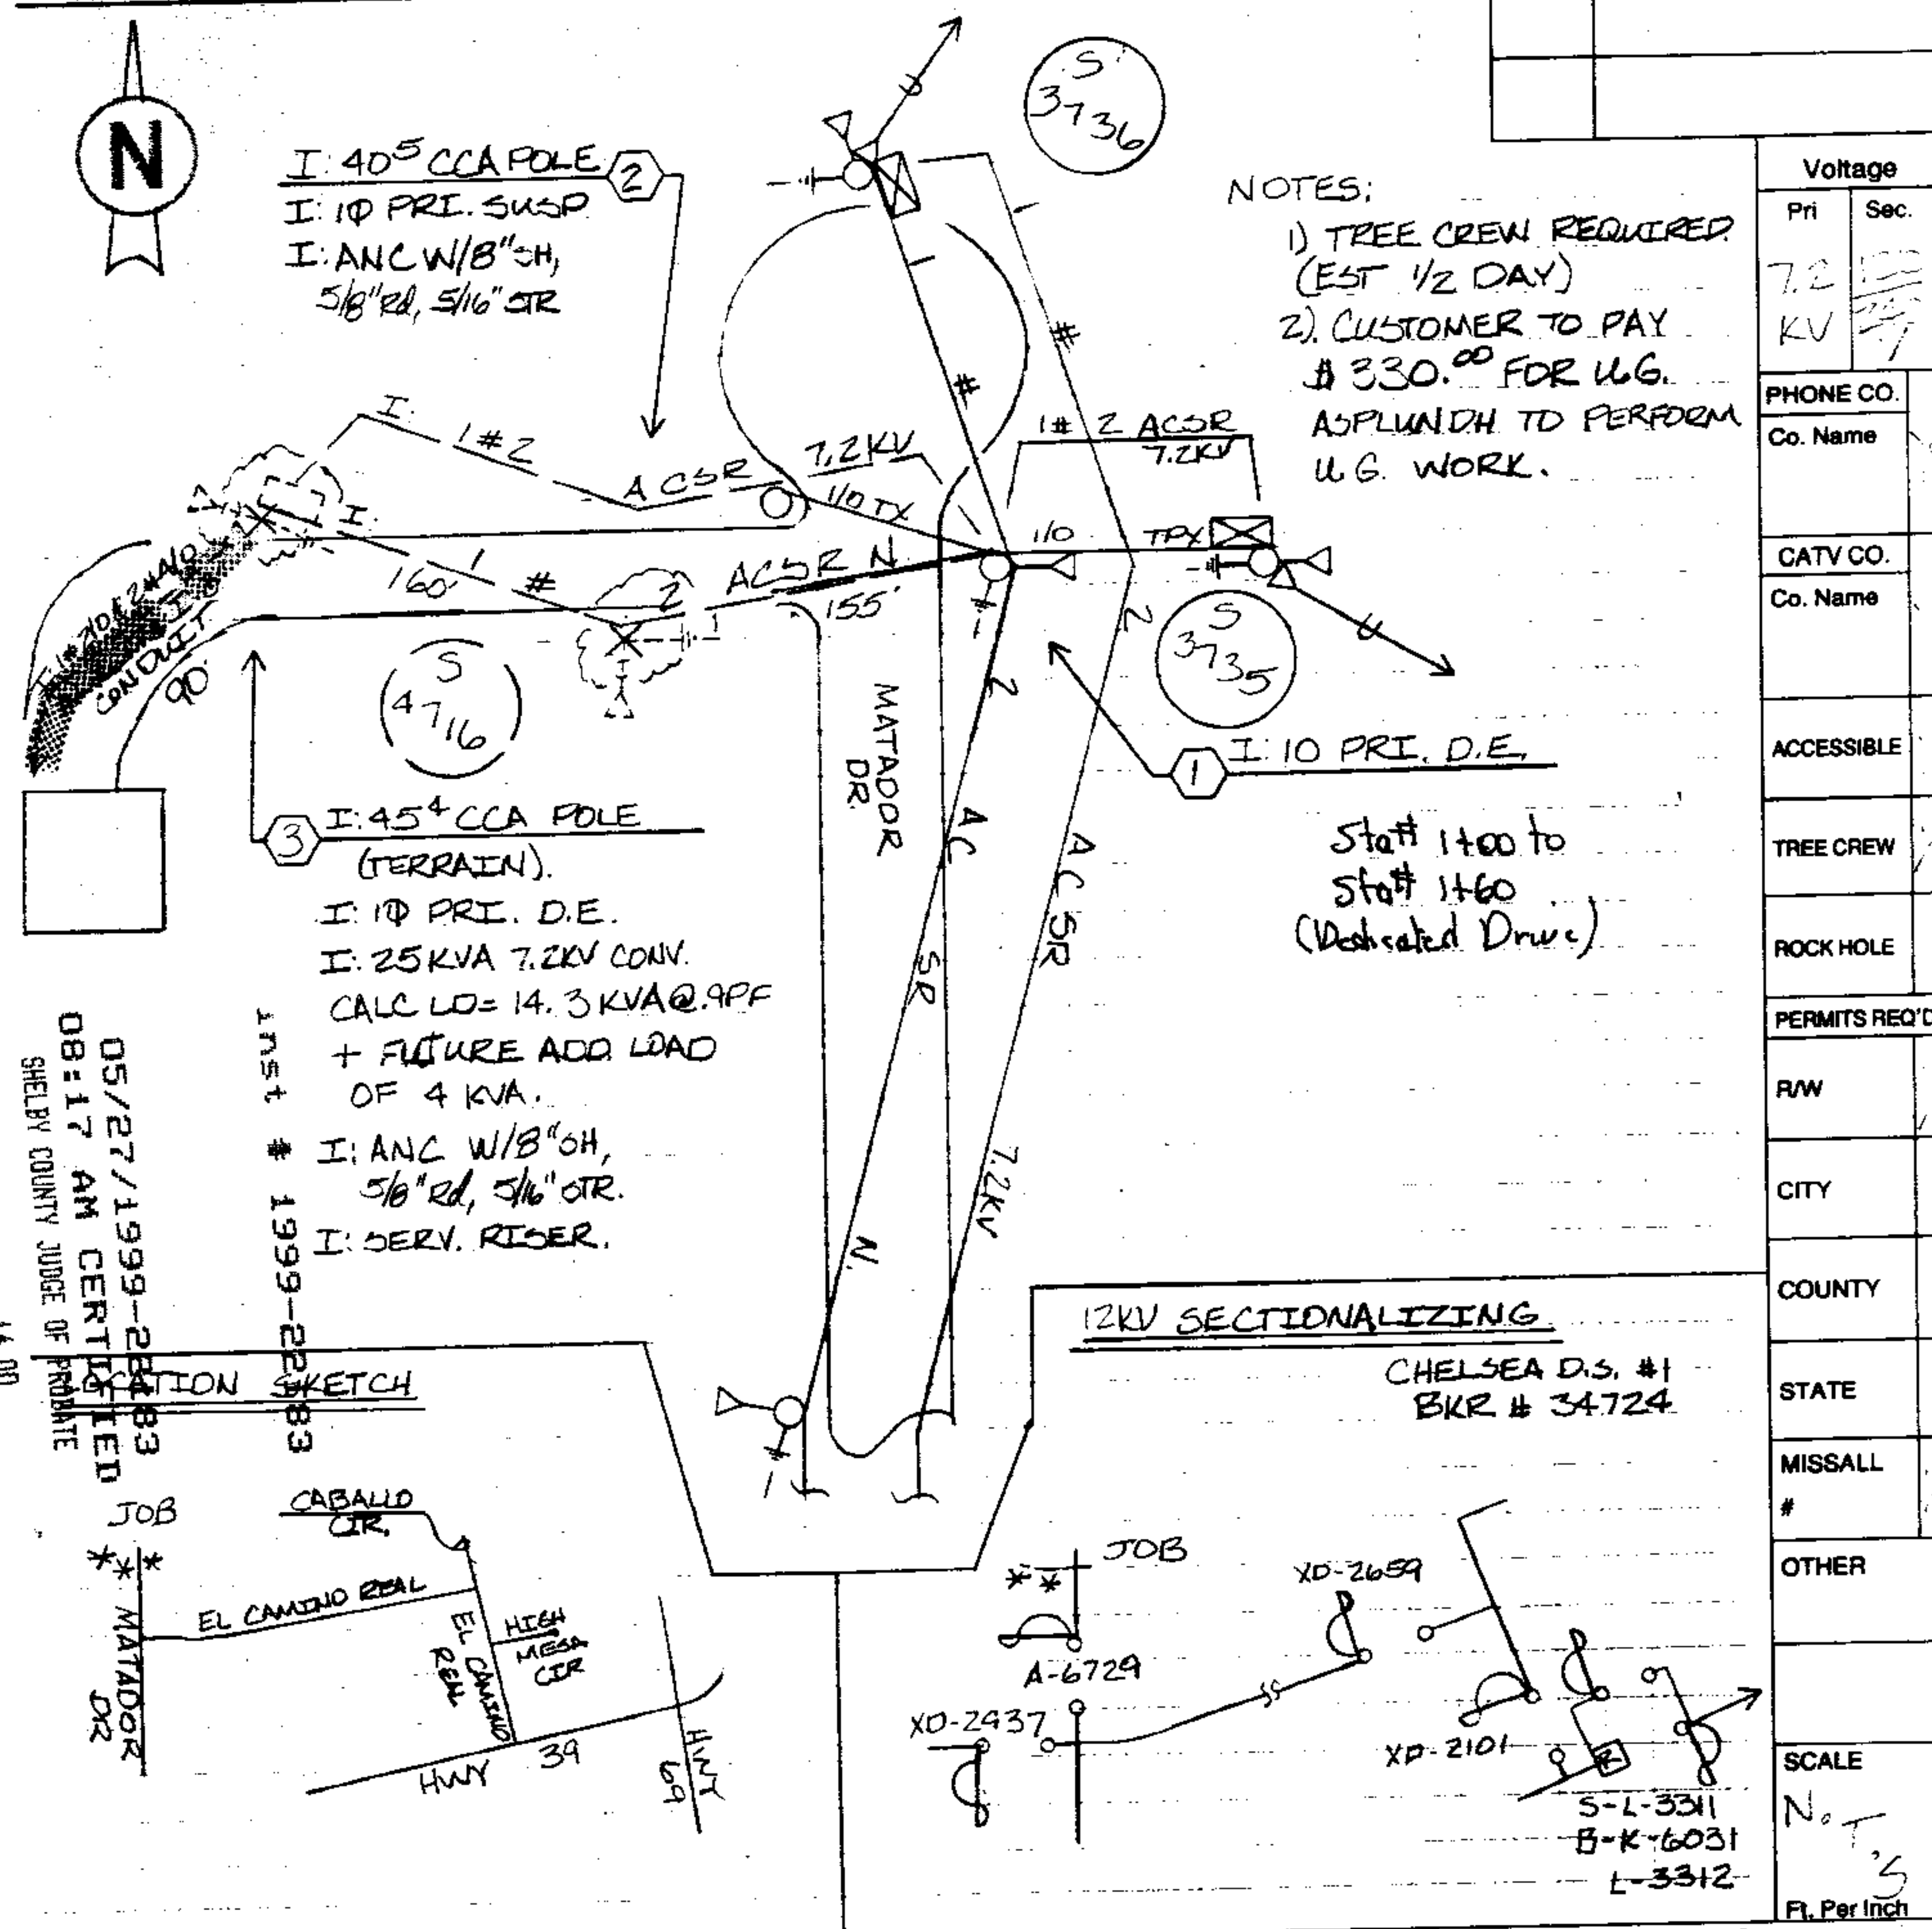 N
I: 40⁵ CCA POLE
2
I: 1Φ PRI. SUSP
I: ANC W/8" SH,
5/8" Rd, 5/16" STR
S
3736
NOTES:
1) TREE CREW REQUIRED
(EST 1/2 DAY)
2). CUSTOMER TO PAY
$ 330.⁰⁰ FOR U.G.
ASPLUNDH TO PERFORM
U.G. WORK.
I: 1#2 ACSR 7.2KV
1/0 TX
1# 2 ACSR
7.2KV
1/0 TPX
I: 1 # 2 ACSR N
160'
155'
CONDUIT
90'
S
4716
S
3735
MATADOR
DR.
1 # 2 ACSR N.
1 # 2 ACSR 7.2KV
1
I: 10 PRI. D.E.
Sta# 1+00 to
Sta# 1+60
(Dedicated Drive)
3
I: 45⁴ CCA POLE
(TERRAIN).
I: 1Φ PRI. D.E.
I: 25 KVA 7.2KV CONV.
CALC LD= 14.3 KVA@.9PF
+ FUTURE ADD. LOAD
OF 4 KVA.
I: ANC W/8" SH,
5/8" Rd, 5/16" STR.
I: SERV. RISER.
Inst # 1999-22183
05/27/1999-22183
08:17 AM CERTIFIED
SHELBY COUNTY JUDGE OF PROBATE
LOCATION SKETCH
JOB
***
MATADOR
DR
CABALLO
CIR.
EL CAMINO REAL
EL CAMINO
REAL
HIGH
MESA
CIR
HWY 39
HWY
69
12KV SECTIONALIZING
CHELSEA D.S. #1
BKR # 34724
JOB
**
A-6729
XD-2437
XD-2659
XD-2101
R
S-L-3311
B-K-6031
L-3312
Voltage
Pri
Sec.
7.2
KV
PHONE CO.
Co. Name
CATV CO.
Co. Name
ACCESSIBLE
TREE CREW
ROCK HOLE
PERMITS REQ'D
R/W
CITY
COUNTY
STATE
MISSALL
#
OTHER
SCALE
N.T.S
Ft. Per Inch